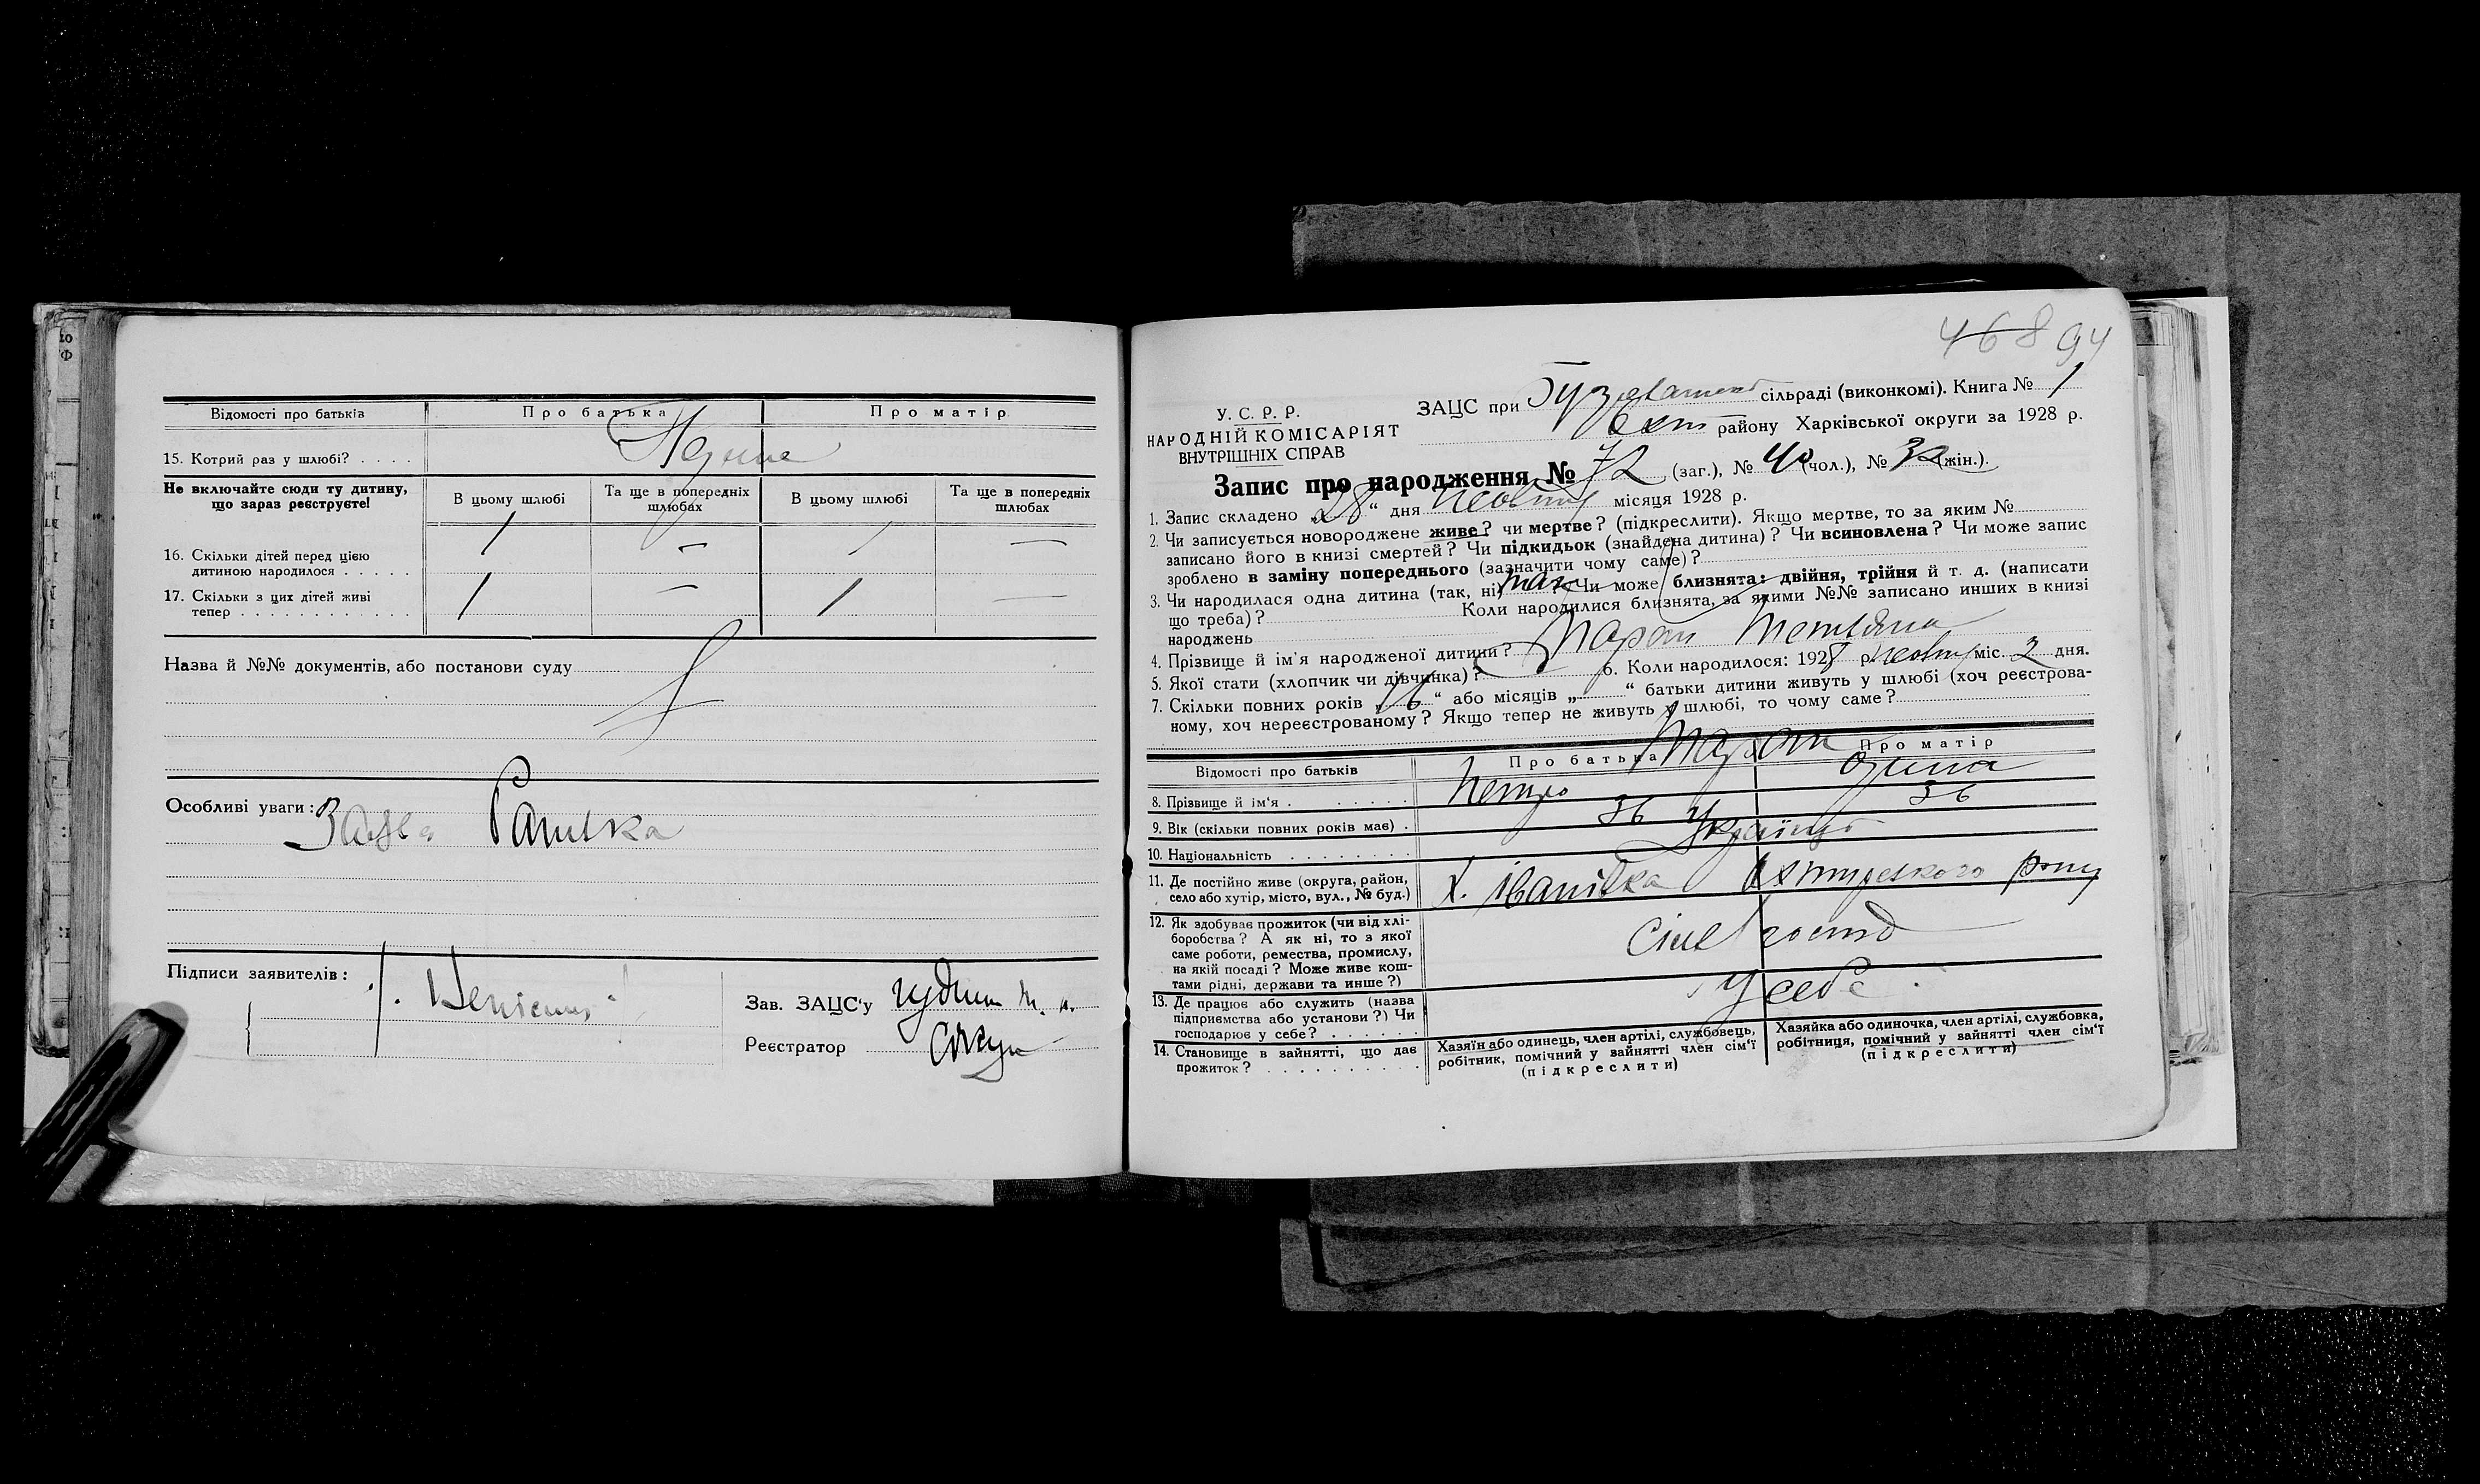 Відомості про батьків
Про батька
Про матір
15. Котрий раз у шлюбі? . . . .
Не включайте сюди ту дитину,
що зараз реєструєте!
В цьому шлюбі
Та ще в попередніх
шлюбах
В цьому шлюбі
Та ще в попередніх
шлюбах
16. Скільки дітей перед цією
дитиною народилося . . . . .
/ — / —
17. Скільки з цих дітей живі
тепер . . . . . . . . . . . .
/ — / —
Назва й №№ документів, або постанови суду
Особливі уваги:
Підписи заявителів:
Зав. ЗАЦС'у
Реєстратор
468 94
У. С. Р. Р.
НАРОДНІЙ КОМІСАРІЯТ
ВНУТРІШНІХ СПРАВ
ЗАЦС при сільраді (виконкомі). Книга № 1
Охт району Харківської округи за 1928 р.
Запис про народження № 72 (заг.), № 40 (чол.), № 32 (жін.).
1. Запис складено „28“ дня жовтня місяця 1928 р.
2. Чи записується новороджене живе? чи мертве? (підкреслити). Якщо мертве, то за яким №
записано його в книзі смертей? Чи підкидьок (знайдена дитина)? Чи всиновлена? Чи може запис
зроблено в заміну попереднього (зазначити чому саме)?
3. Чи народилася одна дитина (так, ні) так Чи може близнята: двійня, трійня й т. д. (написати
що треба)? Коли народилися близнята, за якими №№ записано инших в книзі
народжень
4. Прізвище й ім'я народженої дитини? Таран Тетяна
5. Якої стати (хлопчик чи дівчинка)? 6. Коли народилося: 1928 р. жовтня міс. 2 дня.
7. Скільки повних років „16“ або місяців „ “ батьки дитини живуть у шлюбі (хоч реєстрова-
ному, хоч нереєстрованому? Якщо тепер не живуть у шлюбі, то чому саме?
Відомості про батьків
Про батька
Про матір
Таран
8. Прізвище й ім'я . . . . . . Петро
9. Вік (скільки повних років має) . 36 36
10. Національність . . . . . . . . Українці
11. Де постійно живе (округа, район,
село або хутір, місто, вул., № буд.)
х. Іванівка Охтирського р-ну
12. Як здобуває прожиток (чи від хлі-
боробства? А як ні, то з якої
саме роботи, ремества, промислу,
на якій посаді? Може живе кош-
тами рідні, держави та инше?)
Сільське госпд
13. Де працює або служить (назва
підприємства або установи?) Чи
господарює у себе? . . . . . .
У себе
14. Становище в зайнятті, що дає
прожиток? . . . . . . . . . .
Хазяїн або одинець, член артілі, службовець,
робітник, помічний у зайнятті член сім'ї
(підкреслити)
Хазяйка або одиночка, член артілі, службовка,
робітниця, помічний у зайнятті член сім'ї
(підкреслити)